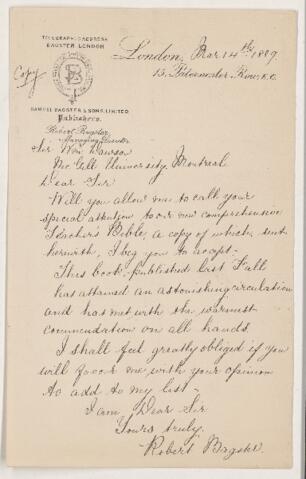 TELEGRAPHIC ADDRESS
BAGSTER LONDON
London, Mar 14th 1889.
15, Paternoster Row, E.C.
Copy
SAMUEL BAGSTER & SONS, LIMITED
Publishers.
Robert Bagster,
Managing Director
Sir Wm Dawson
McGill University, Montreal
Dear Sir
Will you allow me to call your
special attention to our new comprehensive
Teacher's Bible, a copy of which, sent
herewith, I beg you to accept.
This book published last Fall
has attained an astonishing circulation
and has met with the warmest
commendation on all hands.
I shall feel greatly obliged if you
will favor me with your opinion
to add to my list.
I am, Dear Sir
Yours truly,
Robert Bagster